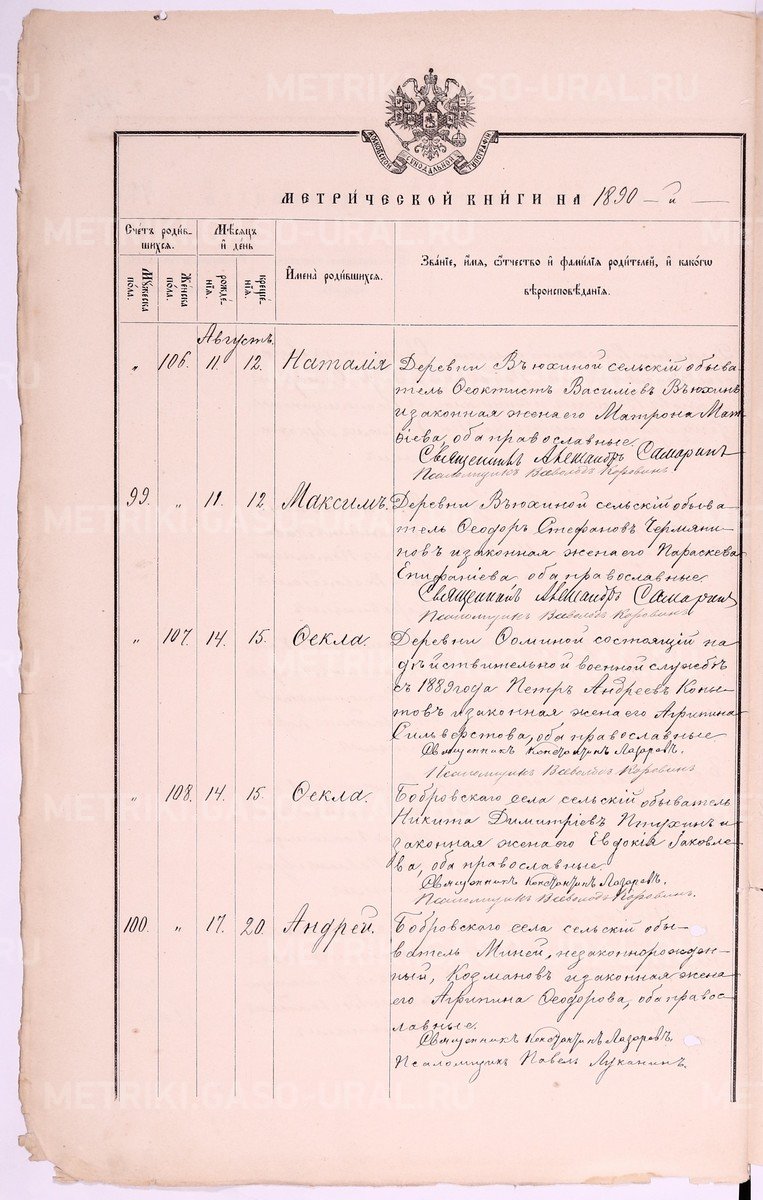 МОСКОВСКОЙ СѴНОДАЛЬНОЙ ТИПОГРАФІИ
МЕТРИ́ЧЕСКОЙ КНИ́ГИ НА 1890 – й –
Счетъ роди́вшихся.
Мѣсяцъ и день
Имена̀ роди́вшихся.
Зва́ніе, и́мя, о́тчество и фами́лія роди́телей, и како́гѡ
вѣроисповѣ́данія.
Мꙋжеска по́ла.
Же́нска по́ла.
рожде́нїѧ.
креще́нїѧ.
Августъ.
„ 106. 11. 12. Наталія
Деревни Вьюхиной сельскій обыва-
тель Ѳеоктистъ Василіевъ Вьюхинъ
и законная жена его Матрона Мат-
ѳіева, оба православные.
Священникъ Александръ Самаринъ
Псаломщикъ Всеволодъ Коровинъ.
99. „ 11. 12. Максимъ.
Деревни Вьюхиной сельскій обыва-
тель Ѳеодоръ Стефановъ Чермяни-
новъ и законная жена его Параскева
Епифаніева оба православные
Священникъ Александръ Самаринъ
Псаломщикъ Всеволодъ Коровинъ
„ 107. 14. 15. Ѳекла.
Деревни Ѳоминой состоящій на
дѣйствительной военной службѣ
съ 1889 года Петръ Андреевъ Копы-
товъ и законная жена его Агрипина
Сильверстова, оба православные
Священникъ Константинъ Лазаревъ.
Псаломщикъ Всеволодъ Коровинъ
„ 108. 14. 15. Ѳекла.
Бобровскаго села сельскій обыватель
Никита Димитріевъ Птухинъ и
законная жена его Евдокія Іаковле-
ва, оба православные
Священникъ Константинъ Лазаревъ.
Псаломщикъ Всеволодъ Коровинъ.
100. „ 17. 20. Андрей.
Бобровскаго села сельскій обы-
ватель Миней, незаконнорожден-
ный, Козмановъ и законная жена
его Агрипина Ѳеодорова, оба правос-
лавные.
Священникъ Константинъ Лазаревъ
Псаломщикъ Павелъ Луканинъ.
METRIKI.GASO-URAL.RU